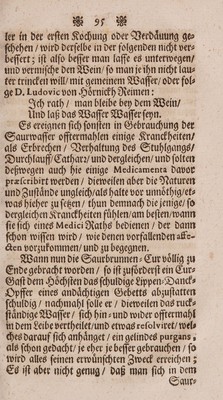 95
ler in der ersten Kochung oder Verdäuung ge-
schehen / wird derselbe in der folgenden nicht ver-
bessert; ist also besser man lasse es unterwegen /
und vermische den Wein / so man je ihn nicht lau-
ter trincken will / mit gemeinem Wasser / oder fol-
ge D. Ludovic von Hörnickh Reimen:
Ich rath / man bleibe bey dem Wein /
Und laß das Wasser Wasser seyn.
Es ereignen sich sonsten in Gebrauchung der
Saurwasser offtermahlen einige Kranckheiten /
als Erbrechen / Verhaltung des Stuhlgangs /
Durchlauff / Catharz / und dergleichen / und solten
deßwegen auch hie einige Medicamenta davor
præscribirt werden / dieweilen aber die Naturen
und Zustände ungleich / als halte vor unnöthig / et-
was hieher zu setzen / thun demnach die jenige / so
dergleichen Kranckheiten fühlen / am besten / wann
sie sich eines Medici Raths bedienen / der dann
schon wissen wird / wie denen vorfallenden affe-
cten vorzukommen / und zu begegnen.
Wann nun die Saurbrunnen-Cur völlig zu
Ende gebracht worden / so ist zuförderst ein Cur-
Gast dem Höchsten das schuldige Lippen-Danck-
Opffer eines andächtigen Gebetts abzustatten
schuldig / nachmahl solle er / dieweilen das rück-
ständige Wasser / sich hin- und wider offtermahl
in dem Leibe vertheilet / und etwas resolviret / wel-
ches darauf sich anhänget / ein gelindes purgans,
als schon gedacht / je eher je besser gebrauchen / so
wird alles seinen erwünschten Zweck erreichen;
Es ist aber nicht genug / daß man sich in dem
Saur-